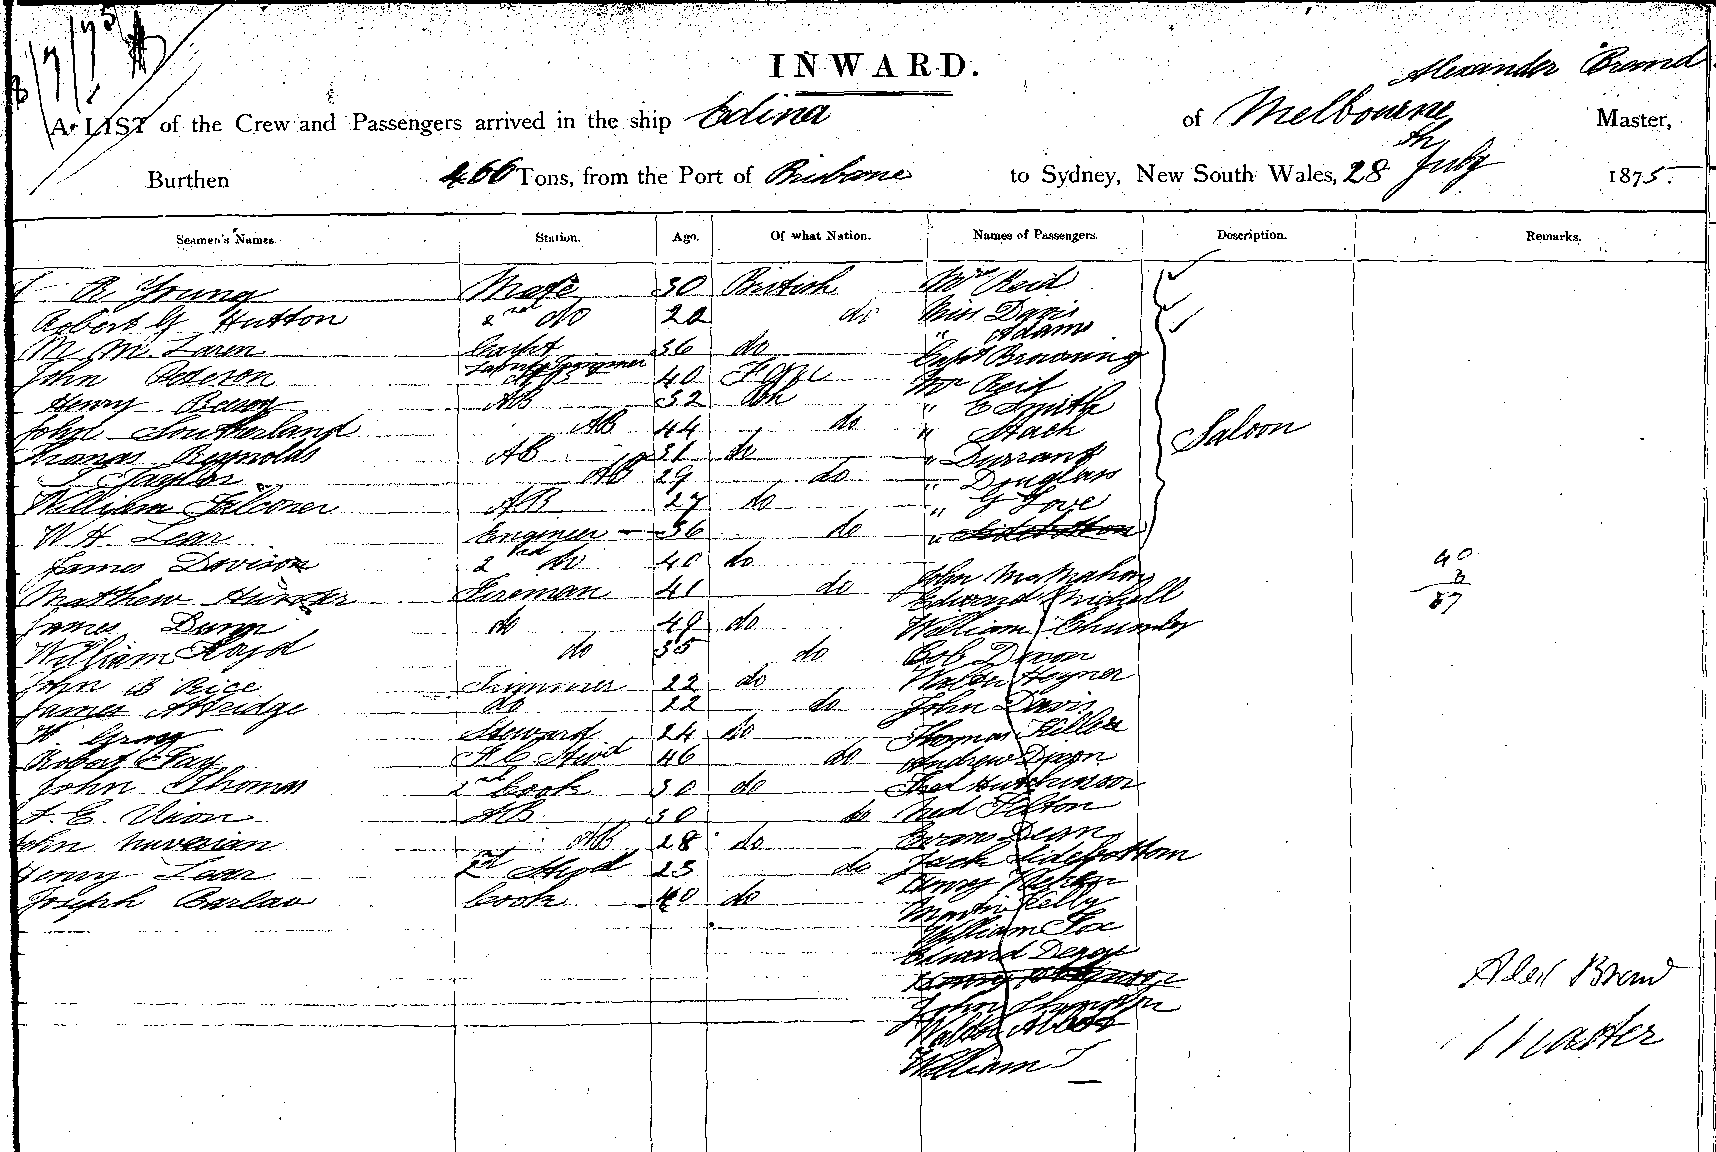 INWARD.
Alexander Brand
A LIST of the Crew and Passengers arrived in the ship Edina of Melbourne Master,
Burthen 466 Tons, from the Port of Brisbane to Sydney, New South Wales, 28th July 1875.
Seamen's Names. Station. Age. Of what Nation. Names of Passengers. Description. Remarks.
R Young Mate 30 British Mrs Reid
Robert G Hutton 2nd do 22 do Miss Davis
" Adams
M McLaren 36 do Capt Browning
John 40 Mr Reid
Henry AB 32 " E Smith
John Southerland AB 44 do " Stack
Thomas Reynolds AB 31 do " Durrant
T Taylor AB 29 do " Douglass
William Falconer AB 27 do " G Love
Saloon
W H Lear Engineer 36 do " Sidebottom
James Davison 2nd do 40 do
John McMahon
Matthew Hunter Fireman 41 do Edward Michell
James Dunn do 49 do William Chumley
William Lloyd do 35 do Bob Dixon
John B Rice Trimmer 22 do Walter Hogner
James Attridge do 22 do John Davis
W. Gray Steward 24 do Thomas
Robert Fay F C Stwd 46 do Andrew Dixon
John Thomas 2nd Cook 30 do Fred Hutchinson
F. E. AB 30 do Ned Felton
John AB 28 do Evans Dean
Henry Lear 2nd Stwd 23 do Jack Sidebottom
Joseph Barlow Cook 40 do Henry
Martin Kelly
William Fox
Edward
Henry
John
Walter Abbott
William T
90
3
87
Alex Brand
Master